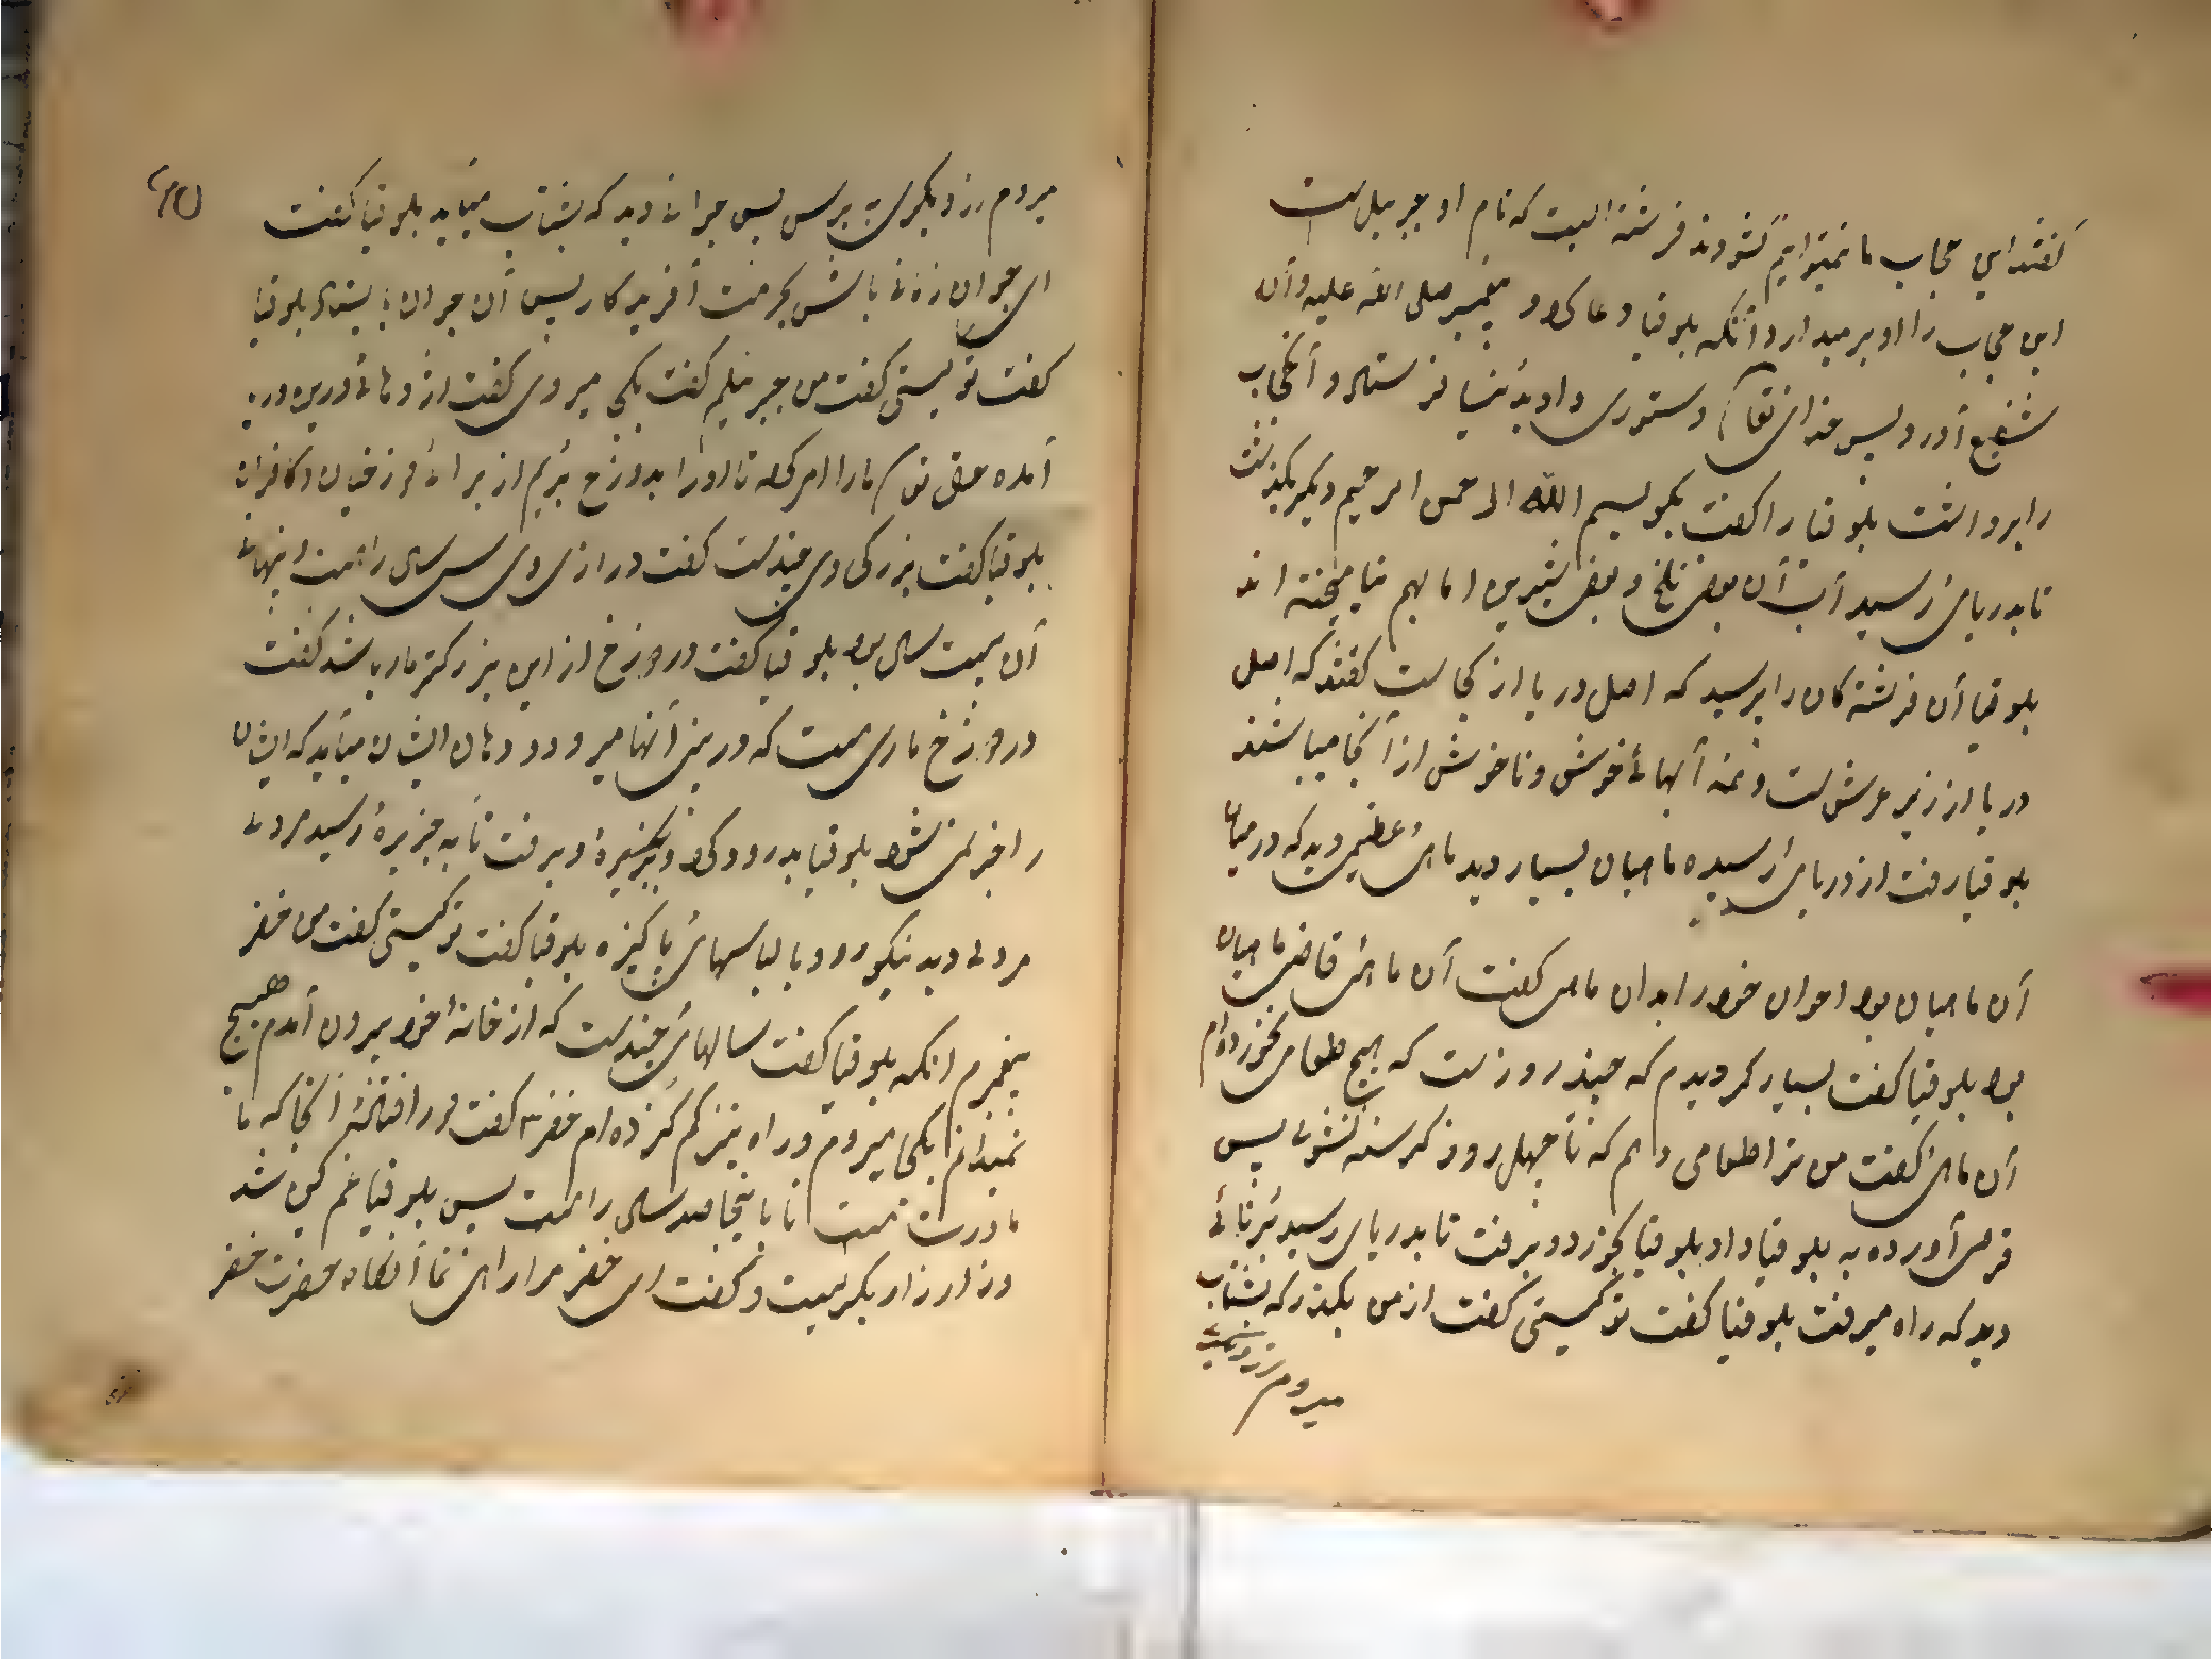 گفتند این حجاب ما نمیتوانیم گشودند فرشته ایست که نام او جبرئیل است
این حجاب را او بر میدارد آنکه بلوقیا دعا کرد و پیغمبر صلی الله علیه وآله
شفیع آورد پس خدای تعالی دستوری داد فرستاد و آن حجاب
را برداشت بلوقیا را گفت بگو بسم الله الرحمن الرحیم دیگر بگذشت
تا بدریای رسید آب آن بعضی تلخ و بعضی شیرین اما بهم نیامیخته اند
بلوقیا آن فرشته کان را پرسید که اصل دریا از کجاست گفتند که اصل
دریا از زیر عرش است و همه آبهائے خوش و ناخوش از آنجا میباشند
بلوقیا رفت از دریای رسیده ماهیان بسیار دید ماهی عظیمی دید که در میان
آن ماهیان بود احوال خود را بدان ماهی گفت آن ماهی قاضی ماهیان
بود بلوقیا گفت بسیار گردیدم که چند روزست که هیچ طعامی نخورده ام
آن ماهی گفت من ترا طعامی دهم که تا چهل روز گرسنه نشوی پس
قرصی آورده به بلوقیا داد بلوقیا بخورد و برفت تا بدریای رسید
دید که راه میرفت بلوقیا گفت تو کیستی گفت از من بگذر که بشتاب
میروم
میروم از دیگری بپرس پس جوانے دید که بشتاب میآید بلوقیا گفت
ای جوان زمانے باش بحرمت آفریدکار پس آن جوان بایستاد بلوقیا
گفت تو کیستی گفت من جبرئیلم گفت بکجا میروی گفت اژدهائے در
آمده حق تعالی ما را امر کرد تا او را بدوزخ بریم از برای و کافران
بلوقیا گفت بزرگی وی چندست گفت درازی وی سی سال راهست و پهنائے
آن بیست سال بود بلوقیا گفت در دوزخ از این بزرگتر مار باشد گفت
در دوزخ ماری هست که در بینی آنها میرود و دهان ایشان میآید که ایشان
را خبر نمی شود بلوقیا بدرود کرد و برفت تا به جزیرهٔ رسید مردے
مردے دید نیکو رو و با لباسهای پاکیزه بلوقیا گفت تو کیستی گفت من خضر
پیغمبرم آنکه بلوقیا گفت سالهای چندست که از خانهٔ خود بیرون آمدم هیچ
نمیدانم بکجا میروم و راه نیز گم کرده ام خضر گفت دور افتادهٔ آنجا که ما
مادرت هست تا با ینجا صد سال راهست پس بلوقیا غم گین شد
و زار زار بگریست و گفت ای خضر مرا راهی نما آنگاه حضرت خضر